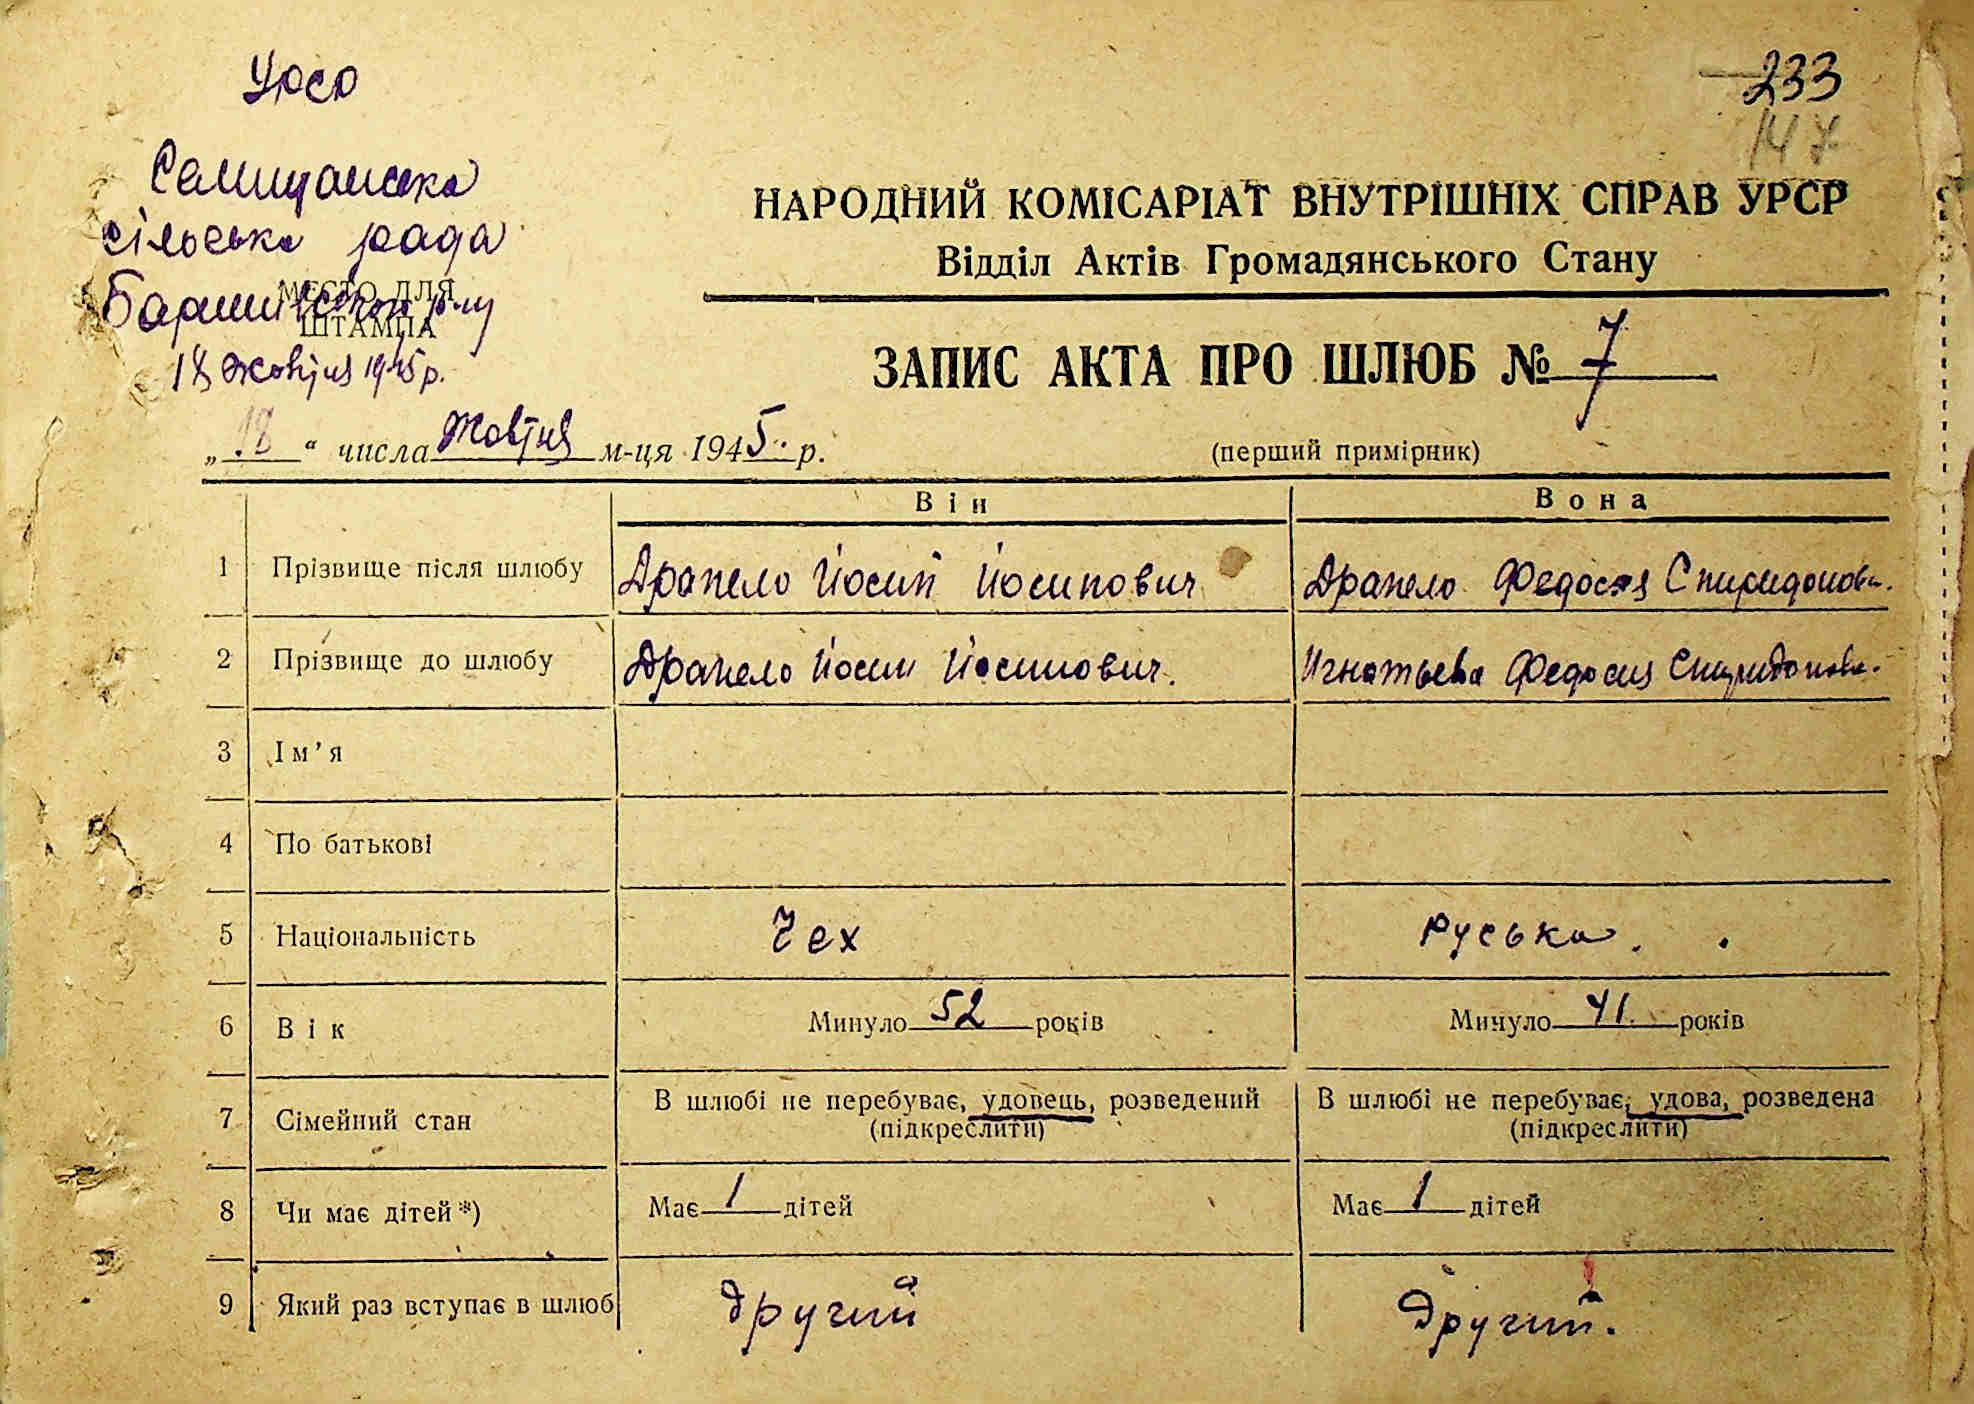 УРСР
233
147
Селищанська
сільська рада
МЕСТО ДЛЯ
ШТАМПА
Баришівського р-ну
18 жовтня 1945 р.
НАРОДНИЙ КОМІСАРІАТ ВНУТРІШНІХ СПРАВ УРСР
Відділ Актів Громадянського Стану
ЗАПИС АКТА ПРО ШЛЮБ № 7
„18“ числа жовтня м-ця 1945. р.
(перший примірник)
Він Вона
1 Прізвище після шлюбу Драпело Йосип Йосипович Драпело Федосія Спиридонов.
2 Прізвище до шлюбу Драпело Йосип Йосипович. Игнатьева Федосия Спиридонов.
3 Ім’я
4 По батькові
5 Національність Чех руська.
6 Вік Минуло 52 років Минуло 41. років
7 Сімейний стан В шлюбі не перебуває, удовець, розведений В шлюбі не перебуває, удова, розведена
(підкреслити) (підкреслити)
8 Чи має дітей*) Має 1 дітей Має 1 дітей
9 Який раз вступає в шлюб другий другий.